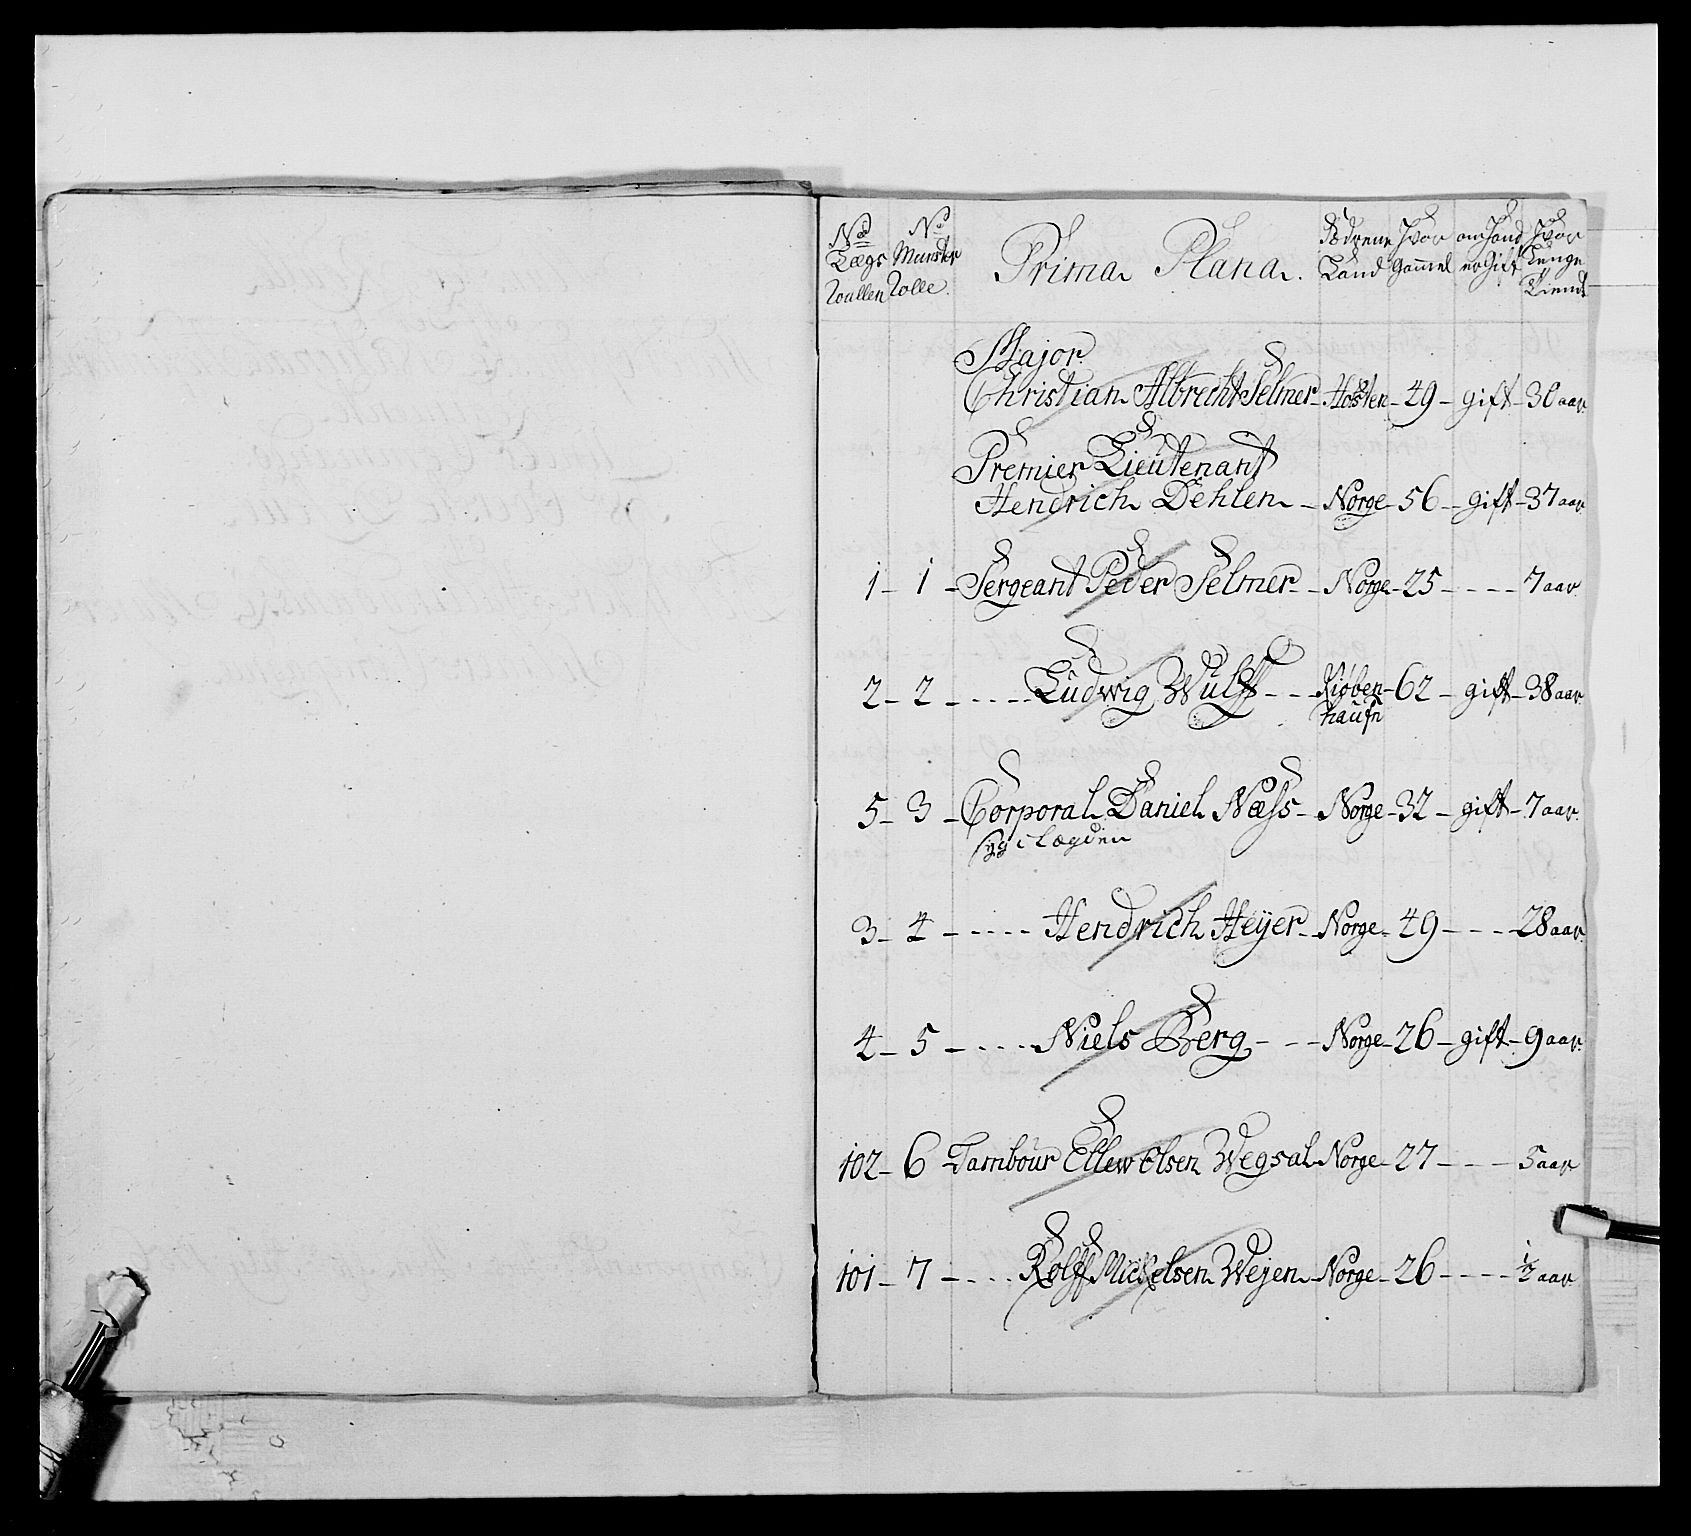 No Lægs Roullen | No Munster Rolle | Prima Plana. | Fødrene Land | Hvor Gammel | om Hand er Gift | Hvor Lenge Tient
Major
Christian Albrecht Selmer - Holsten - 49 - gift - 30 aar
Premier Lieutenant
Hendrich Dehlen - Norge - 56 - gift - 37 aar
1 - 1 - Sergeant Peder Selmer - Norge - 25 - - - - 7 aar
2 - 2 - - - - Ludwig Wulff - - Kiøben haufn - 62 - gift - 38 aar
5 - 3 - Corporal Daniel Næss - Norge - 32 - gift - 7 aar
syg i Lægden
3 - 4 - - - - - Hendrich Heÿer - Norge - 49 - - - 28 aar
4 - 5 - - - - - Niels Berg - - - Norge - 26 - gift - 9 aar
102 - 6 - Tambour Ellew Olsen Wegsal - Norge - 27 - - - 5 aar
101 - 7 - - - - Rolff Mickelsen Wejen - Norge - 26 - - - - ½ aar